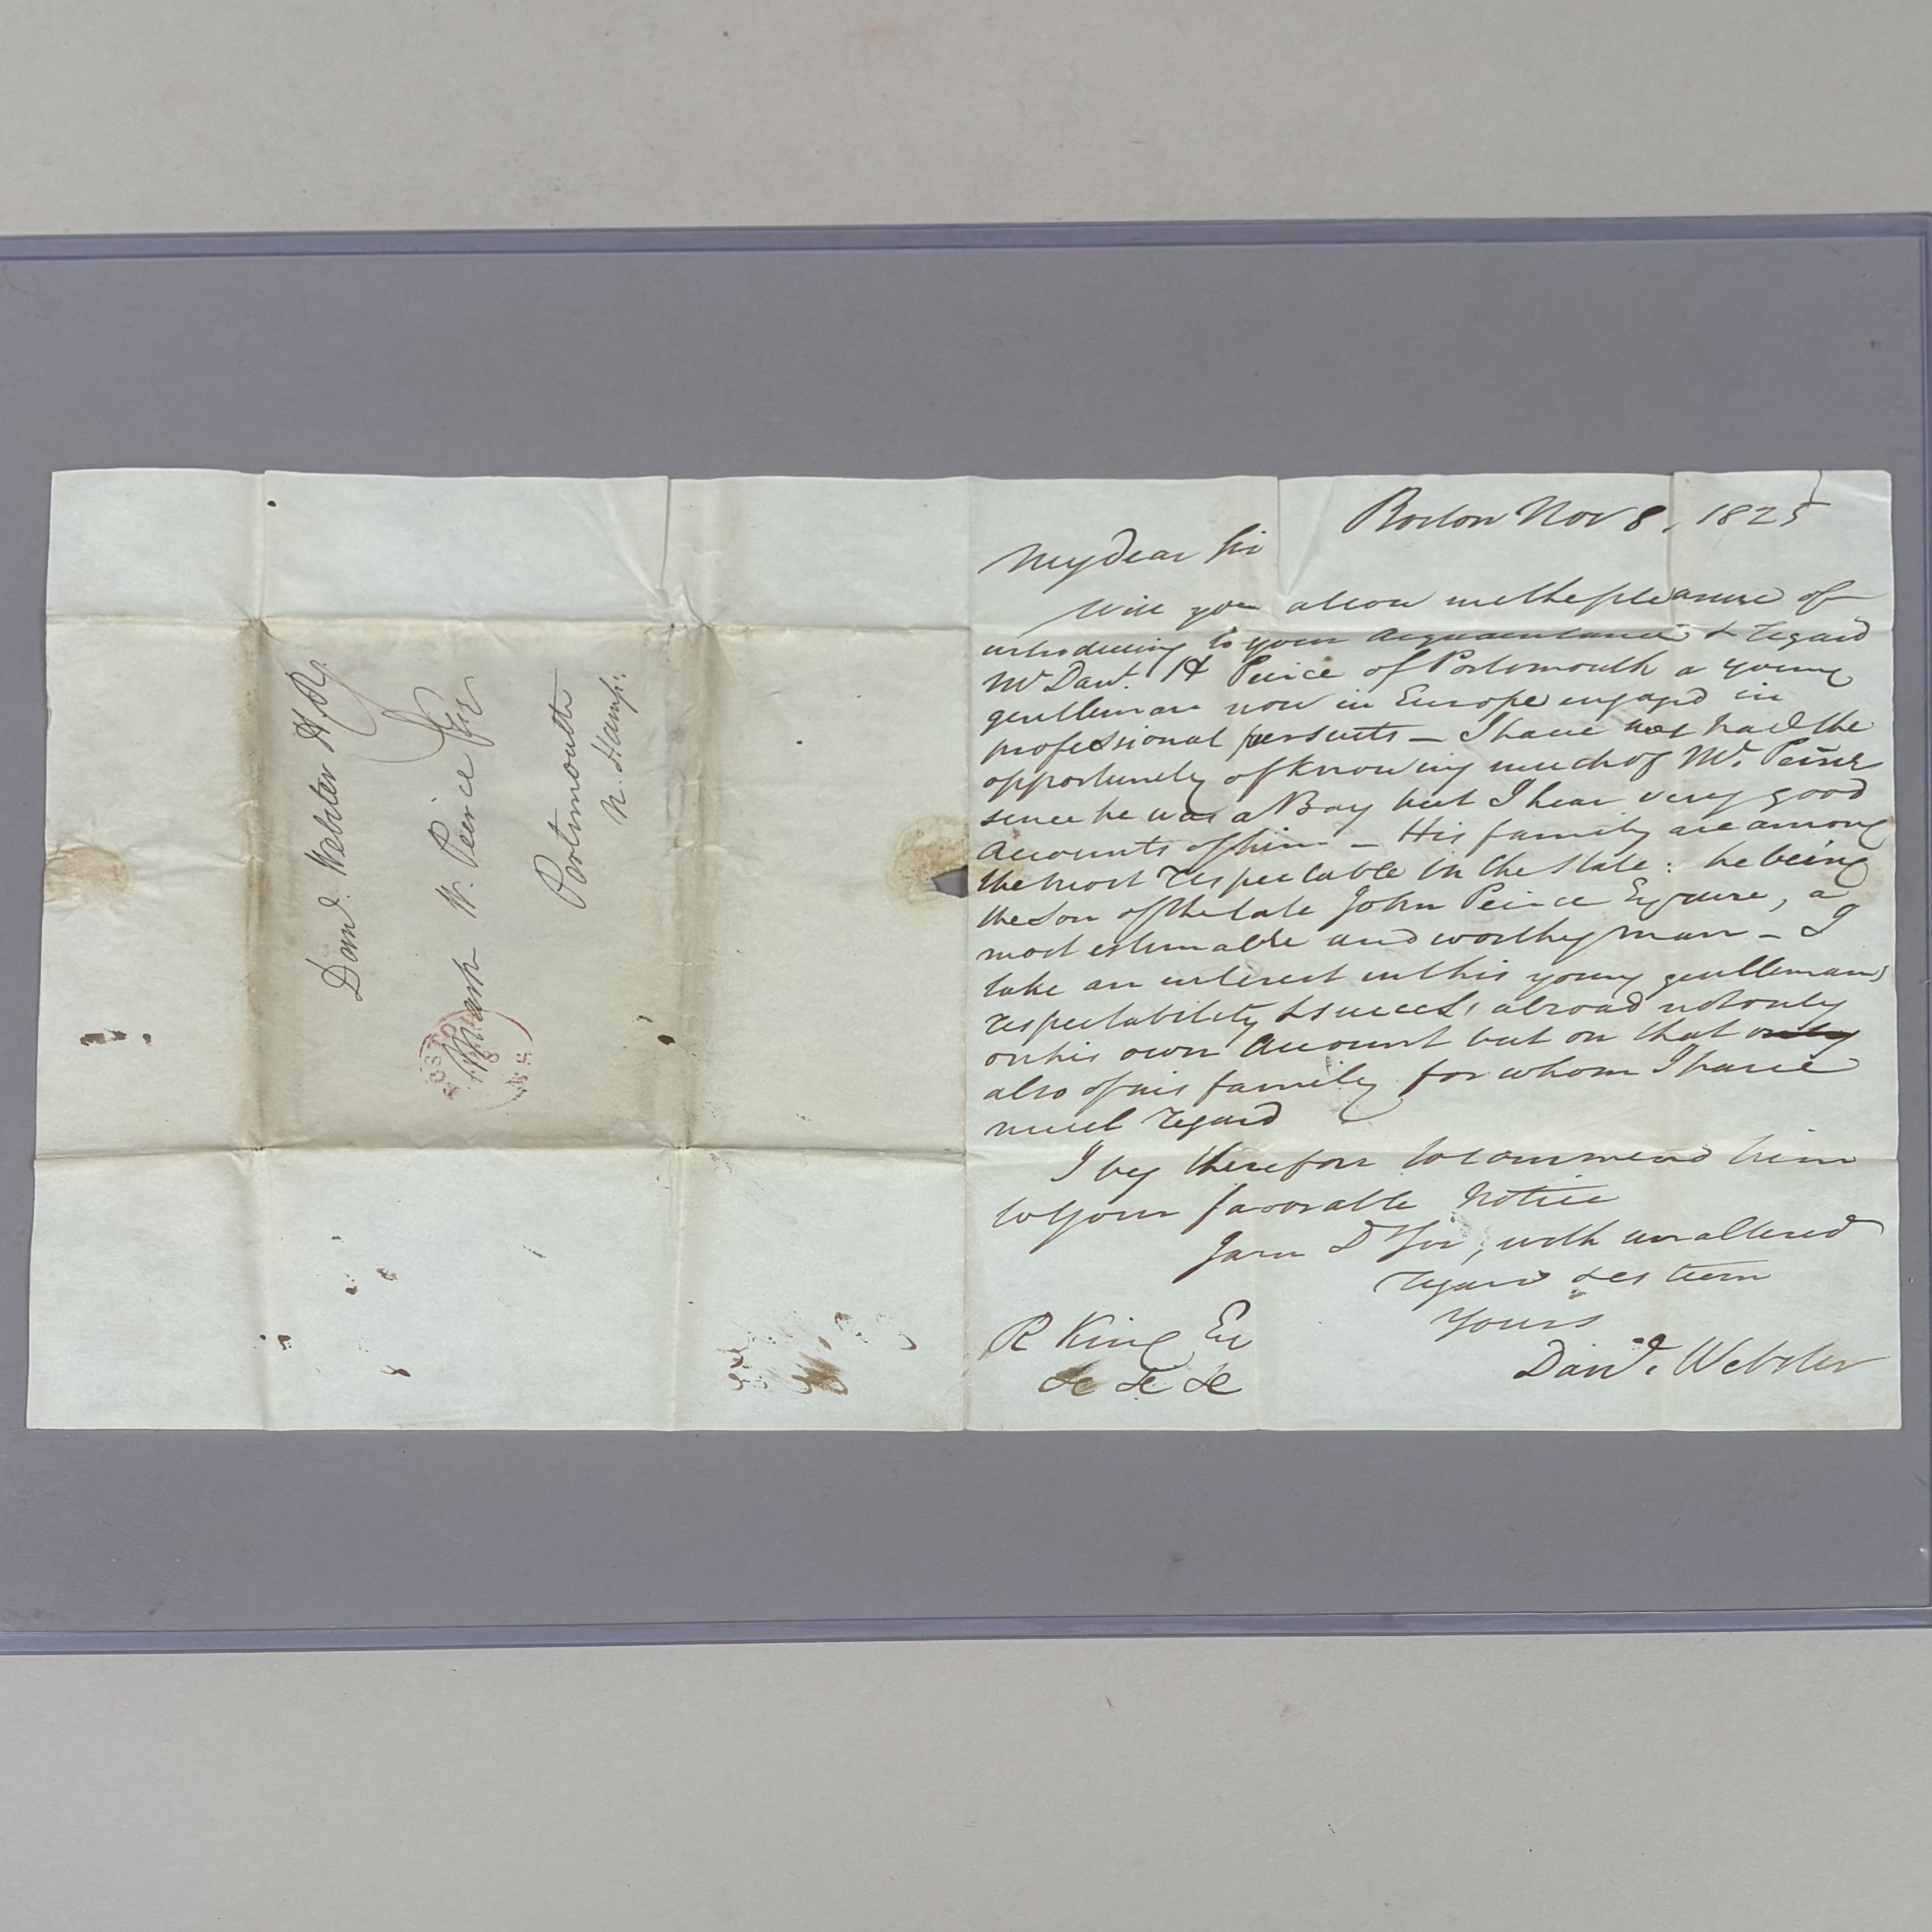 Boston Nov 8, 1825
My Dear Sir
Will you allow me the pleasure of
introducing to your acquaintance & regard
Mr Danl. H Peirce of Portsmouth a young
gentleman now in Europe engaged in
professional pursuits – I have not had the
opportunity of knowing much of Mr. Peirce
since he was a Boy but I hear very good
accounts of him – His family are among
the most respectable in the State: he being
the Son of the late John Peirce Esquire, a
most estimable and worthy man – I
take an interest in this young gentlemans
respectability & success abroad not only
on his own account but on that only
also of his family for whom I have
much regard
I beg therefore to commend him
to your favorable notice
I am D Sir, with unaltered
regard & esteem
Yours
Danl. Webster
R King Es
&c &c &c
Danl. Webster H.R.
Mark W. Peirce Esq
Portsmouth
N. Hamp:
BOSTON
MS